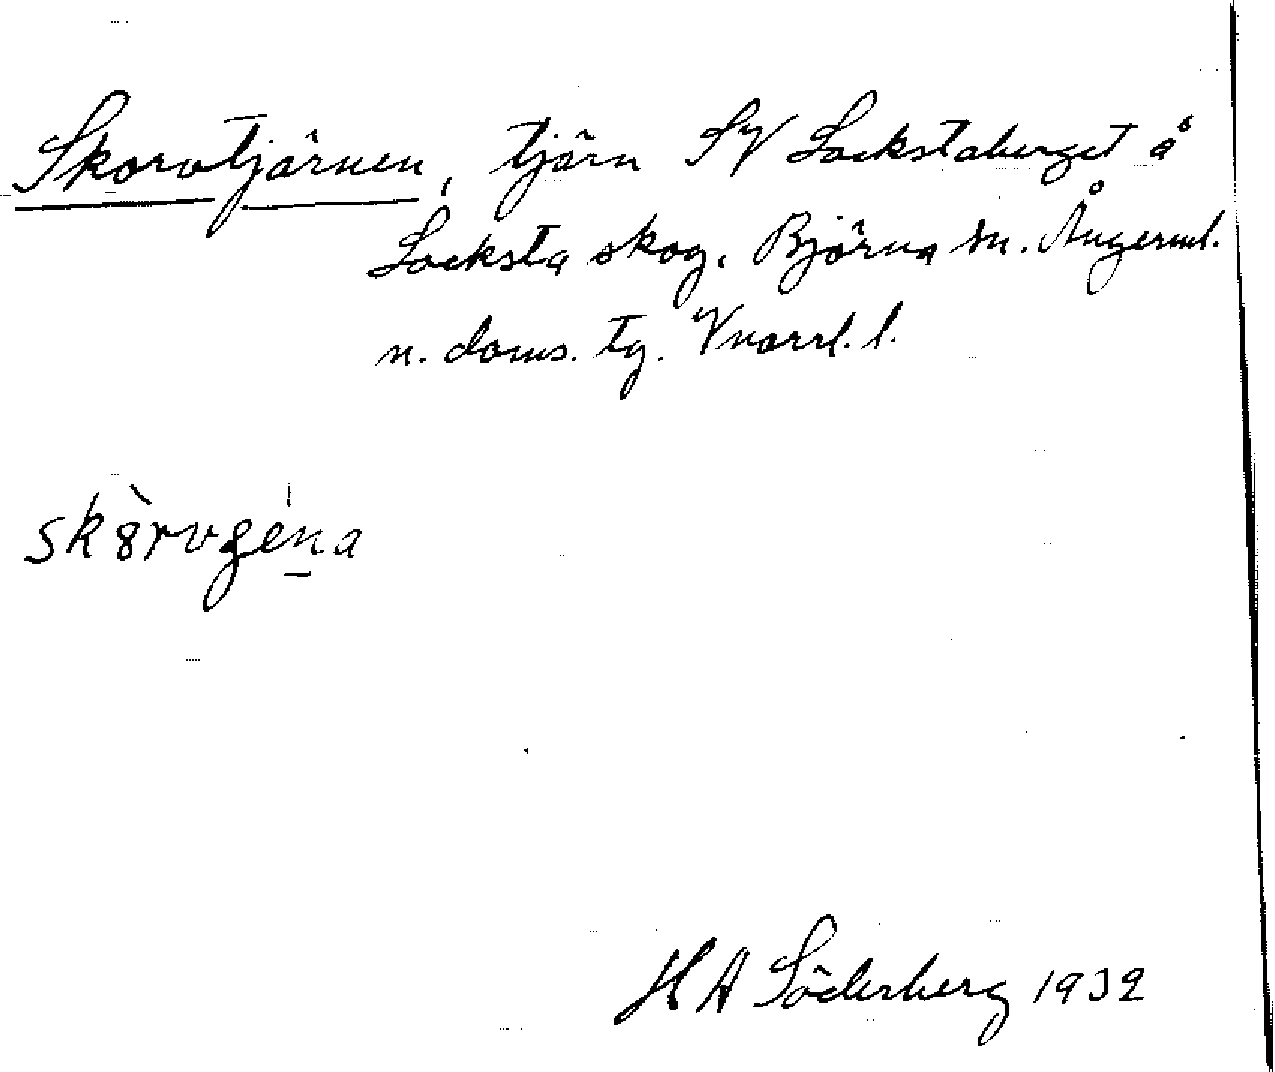 Skorvtjärnen, tjärn SV Lockstaberget å
Locksta skog. Björna sn. Ångerml.
n. doms. tg. Vnorrl. l.
H A Söderberg 1932